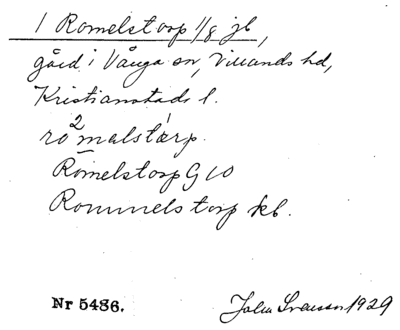 1 Romelstorp 1/8 jb,
gård i Vånga sn, Villands hd,
Kristianstads l.
ro2malstarp.
Romelstorp G 10
Rommelstorp kb.
Nr 5486. John Svensson 1929